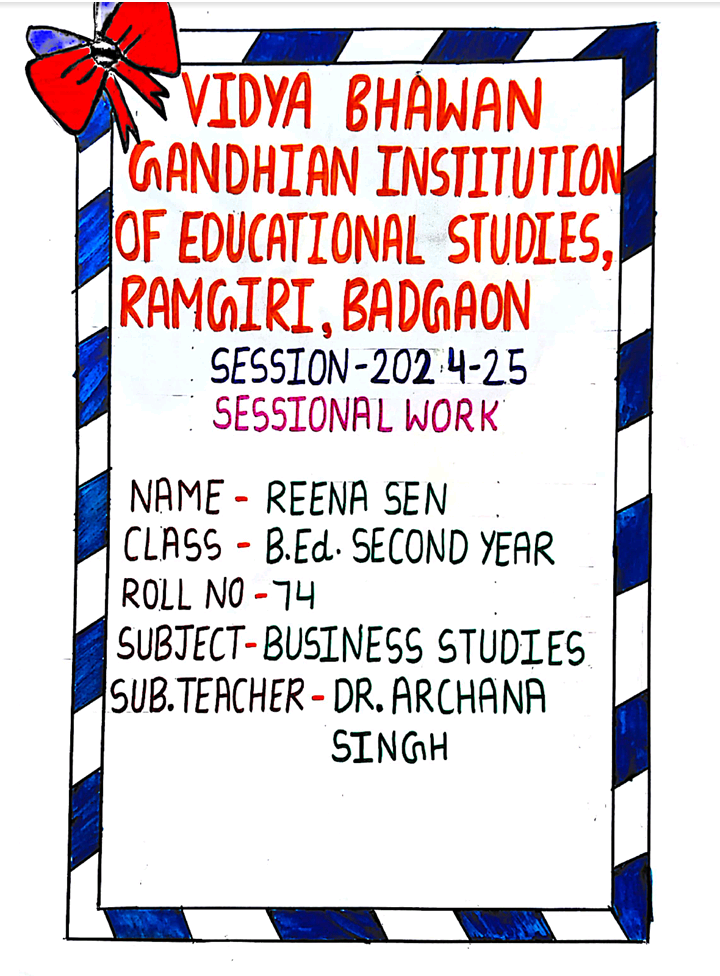 VIDYA BHAWAN
GANDHIAN INSTITUTION
OF EDUCATIONAL STUDIES,
RAMGIRI, BADGAON
SESSION-2024-25
SESSIONAL WORK
NAME - REENA SEN
CLASS - B.Ed. SECOND YEAR
ROLL NO - 74
SUBJECT-BUSINESS STUDIES
SUB.TEACHER - DR. ARCHANA
SINGH